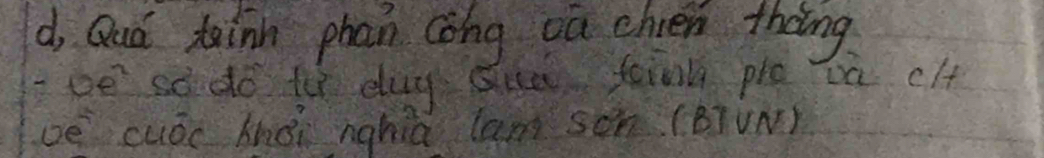 d, Quá trình phản công và chiến thắng
- vẽ sơ đồ tư duy Quá trình p/c và c/t
về cuộc khởi nghĩa lam sơn (BTVN)